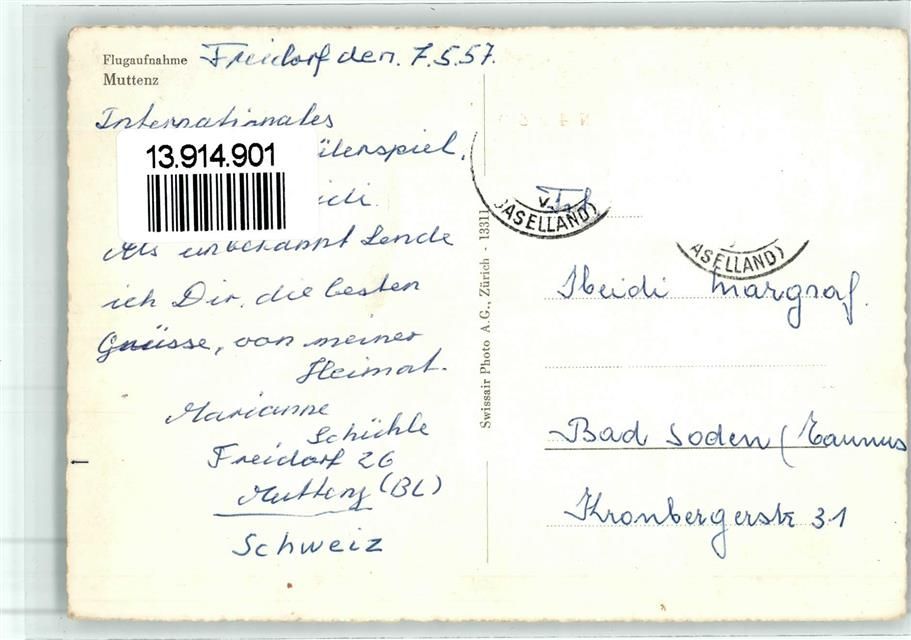 Flugaufnahme
Muttenz
Freidorf den. 7.5.57.
Internationales
ülerspiel.
13.914.901
idi.
Als unbekannt sende
ich Dir, die besten
Grüsse, von meiner
Heimat.
Marianne
Schühle
Freidorf 26
Muttenz (BL)
Schweiz
Swissair Photo A.G., Zürich - 13311
BASELLAND)
ASELLAND)
Frl.
Heidi Margraf.
Bad Soden (Taunus
Kronbergerstr 31